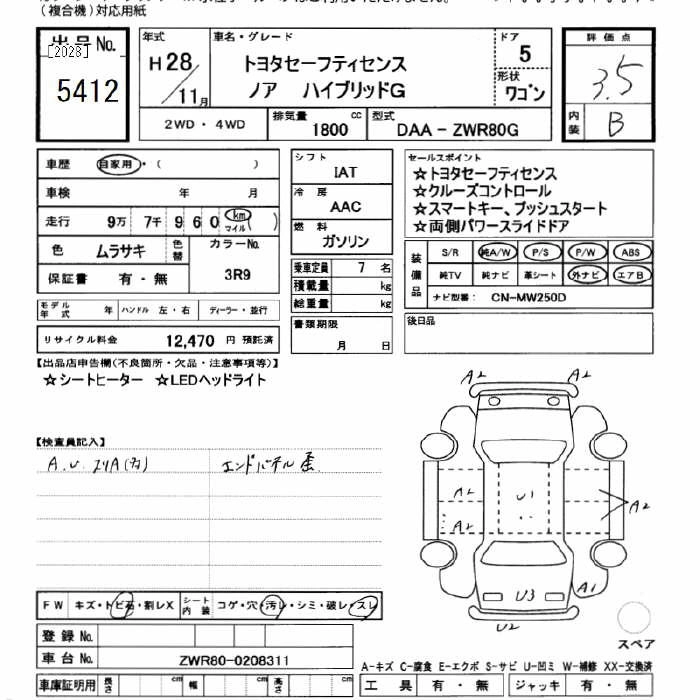 (複合機)対応用紙
出品No.
[2023]
5412
年式
H28/11月
車名・グレード
トヨタセーフティセンス
ノア ハイブリッドG
ドア
5
形状
ワゴン
評価点
3.5
内装
B
2WD・4WD
排気量
1800 cc
型式
DAA-ZWR80G
車歴 自家用・( )
車検 年 月
走行 9万 7千 9 6 0 km マイル ( )
色 ムラサキ 色替 カラーNo.
3R9
保証書 有・無
モデル年式 年 ハンドル 左・右 ディーラー・並行
リサイクル料金 12,470 円 預託済
シフト
IAT
冷房
AAC
燃料
ガソリン
乗車定員 7 名
積載量 kg
総重量 kg
書類期限
月 日
セールスポイント
☆トヨタセーフティセンス
☆クルーズコントロール
☆スマートキー、プッシュスタート
☆両側パワースライドドア
装備品
S/R 純A/W P/S P/W ABS
純TV 純ナビ 革シート 外ナビ エアB
ナビ型番: CN-MW250D
後日品
【出品店申告欄(不良箇所・欠品・注意事項等)】
☆シートヒーター ☆LEDヘッドライト
【検査員記入】
A.U.
エンドパネル歪
A2 A2
A2 U1 A2
A2
U3 A1
U2
スペア
FW キズ・トビ石・割レX シート内装 コゲ・穴・汚レ・シミ・破レ・スレ
登録No.
車台No. ZWR80-0208311
車庫証明用 長さ cm 幅 cm 高さ cm
A-キズ C-腐食 E-エクボ S-サビ U-凹ミ W-補修 XX-交換済
工具 有・無 ジャッキ 有・無